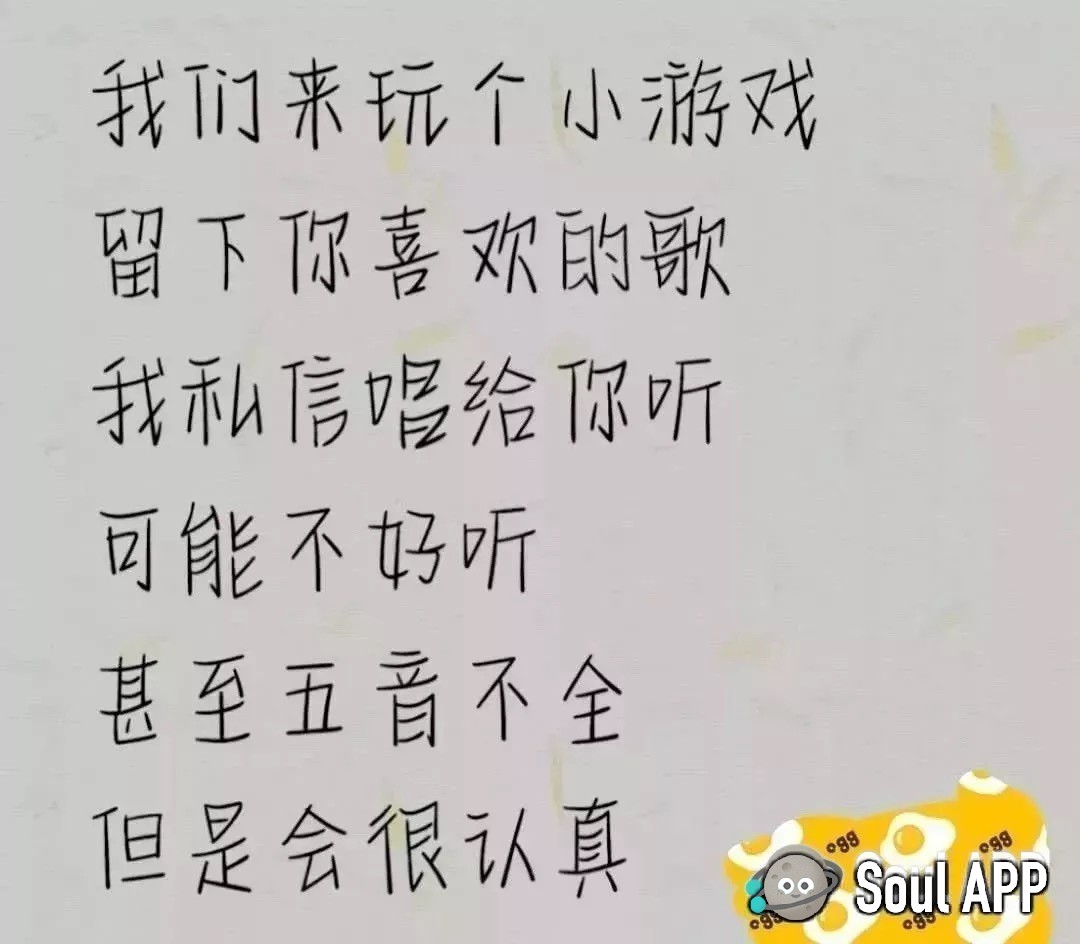 我们来玩个小游戏
留下你喜欢的歌
我私信唱给你听
可能不好听
甚至五音不全
但是会很认真
egg
egg
Soul APP
egg
egg